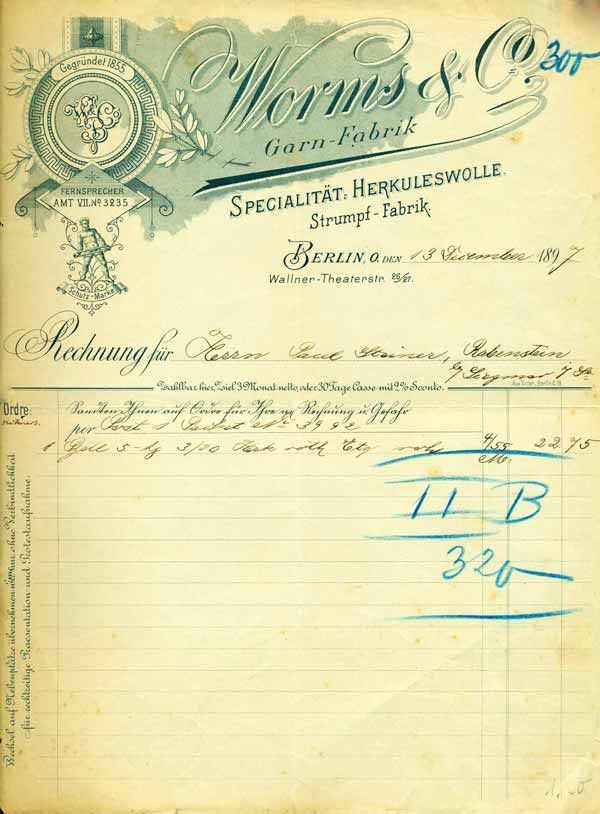 Gegründet 1855.
W & Co
Worms & Co.
300
Garn-Fabrik
FERNSPRECHER
AMT VII. No 3235
SPECIALITÄT: HERKULESWOLLE.
Strumpf-Fabrik.
Schutz-Marke
BERLIN, O. DEN 13 December 1897
Wallner-Theaterstr. 26/27.
Rechnung für Herrn Paul Steiner, Rabenstein
b/ Siegmar i/ Sa.
Zahlbar hier, Ziel 3 Monat netto, oder 30 Tage Casse mit 2% Sconto.
Ordre:
Sandten Ihnen auf Ordre für Ihre w. Rechnung u. Gefahr
per Post 1 Packet No 3992
1 5 Kg 3/20 roth Etq 4/55 22.75
M.
11 B
320
Wechsel auf Nebenplätze übernehmen wir nur ohne Verbindlichkeit
für rechtzeitige Praesentation und Protestaufnahme.